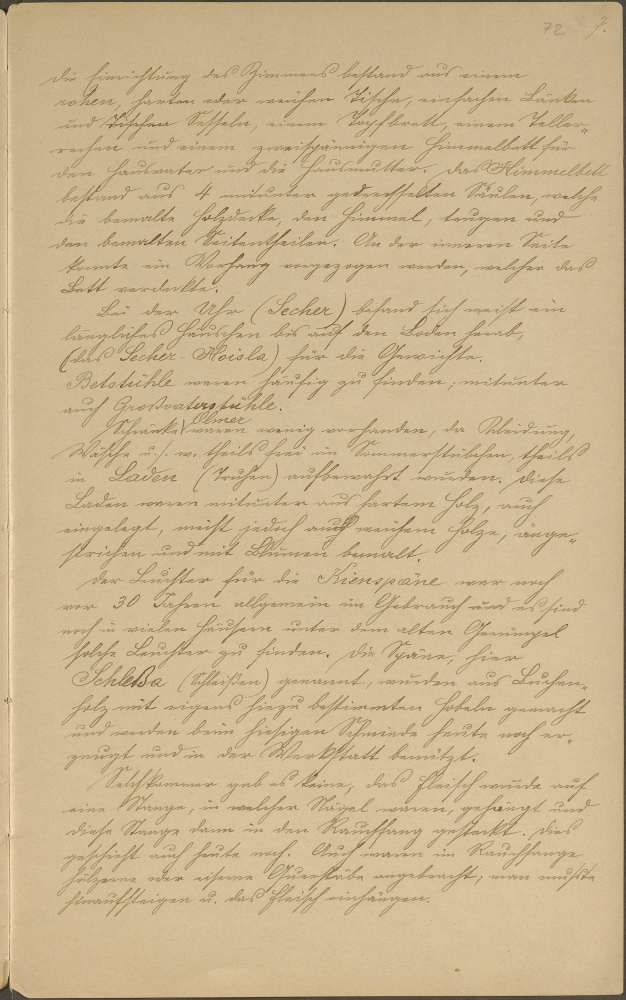 72 7.
Die Einrichtung des Zimmers bestand aus einem
rohen, harten oder weichen Tische, einfachen Bänken
und Tischen Sesseln, einem Topfbrett, einem Teller-
rechen und einem zweispännigen Himmelbett für
den Hausvater und die Hausmutter. Das Himmelbett
bestand aus 4 mitunter gedrechselten Säulen, welche
die bemalte Holzdecke, den Himmel, trugen und
den bemalten Seitentheilen. An der inneren Seite
konnte ein Vorhang vorgezogen werden, welcher das
Bett verdeckte.
Bei der Uhr (Secher) befand sich meist ein
längliches Häuschen bis auf den Boden herab,
(das Secher-Hoisla) für die Gewichte.
Betstühle waren häufig zu finden, mitunter
auch Grossvaterstühle.
Olmer
Schränke waren wenig vorhanden, da Kleidung,
Wäsche u. s. w. theils frei im Sommerstübchen, theils
in Laden (Truhen) aufbewahrt wurden. Diese
Laden waren mitunter aus hartem Holz, auch
eingelegt, meist jedoch aus weichem Holze, ange-
strichen und mit Blumen bemalt.
Der Leuchter für die Kienspäne war noch
vor 30 Jahren allgemein im Gebrauch und es sind
noch in vielen Häusern unter dem alten Gerümpel
solche Leuchter zu finden. Die Späne, hier
Schleßa (Schleißen) genannt, wurden aus Buchen-
holz mit eigens hiezu bestimmten Hobeln gemacht
und werden beim hiesigen Schmiede heute noch er-
zeugt und in der Werkstatt benützt.
Selchkammer gab es keine, das Fleisch wurde auf
eine Stange, in welcher Nägel waren, gehängt und
diese Stange dann in den Rauchfang gesteckt. Dies
geschieht auch heute noch. Auch waren im Rauchfange
hölzerne oder eiserne Querstäbe angebracht, man mußte
hinaufsteigen u. das Fleisch einhängen.